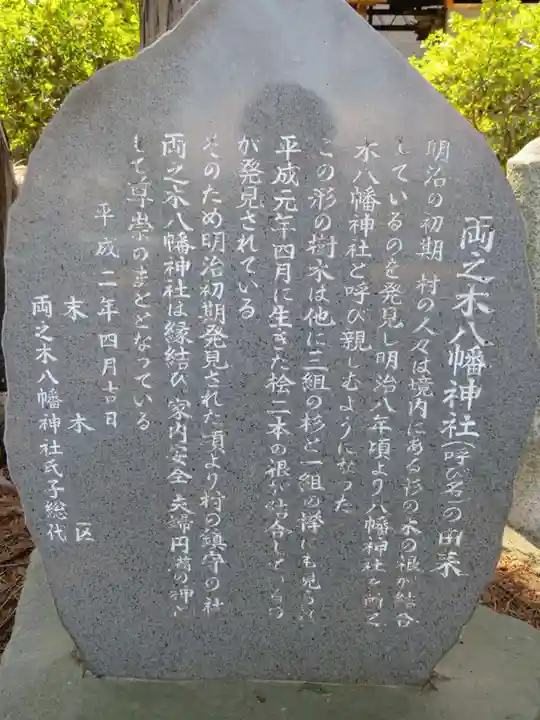 両之木八幡神社(呼び名)の由来
明治の初期 村の人々は境内にある杉の木の根が結合
しているのを発見し明治八年頃より八幡神社を両之
木八幡神社と呼び親しむようになった
この形の樹木は他に三組の杉と一組の欅にも見られ
平成元年四月に生きた桧二本の根が結合しているの
が発見されている
そのため明治初期発見された頃より村の鎮守の社
両之木八幡神社は縁結び 家内安全 夫婦円満の神と
して尊崇のまととなっている
平成二年四月吉日
末木区
両之木八幡神社氏子総代